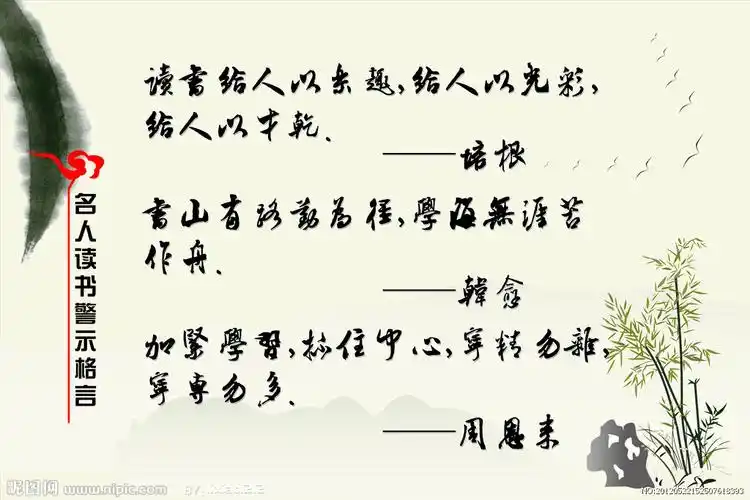 名人读书警示格言
读书给人以乐趣,给人以光彩,
给人以才乾.
——培根
書山有路勤為徑,學海無涯苦
作舟.
——韓愈
加緊學習,抓住中心,寧精勿雜,
寧專勿多.
——周恩来
昵图网 www.nipic.com
NO:20120522152507618393